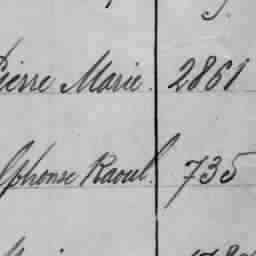 Pierre Marie. 2861
Alphonse Raoul. 735